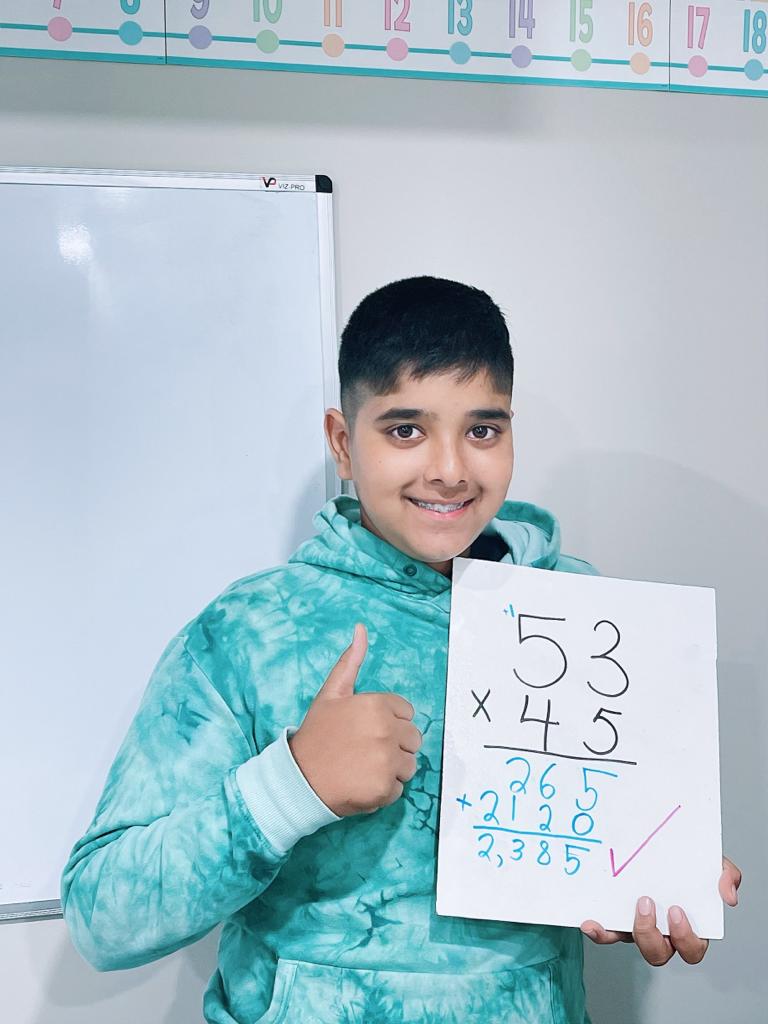 7 8 9 10 11 12 13 14 15 16 17 18
VP VIZ-PRO
+1
53
x 45
265
+2120
2,385 ✓